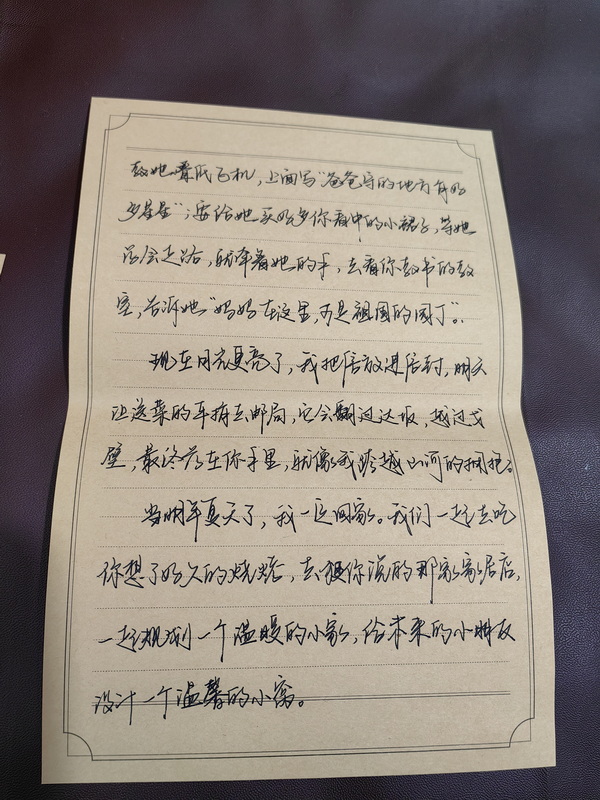 教她叠纸飞机，上面写"爸爸守的地方有好
多星星"；要给她买好多你看中的小裙子，等她
学会走路，就牵着她的手，去看你教书的教
室，告诉她"妈妈在这里，也是祖国的园丁"。
现在月光更亮了，我把信放进信封，明天
让送菜的车捎去邮局，它会翻过达坂，越过戈
壁，最终落在你手里，就像我跨越山河的拥抱。
当明年夏天了，我一定回家。我们一起去吃
你想了好久的烧烤，去逛你说的那家家居店，
一起规划一个温暖的小家，给未来的小朋友
设计一个温馨的小窝。